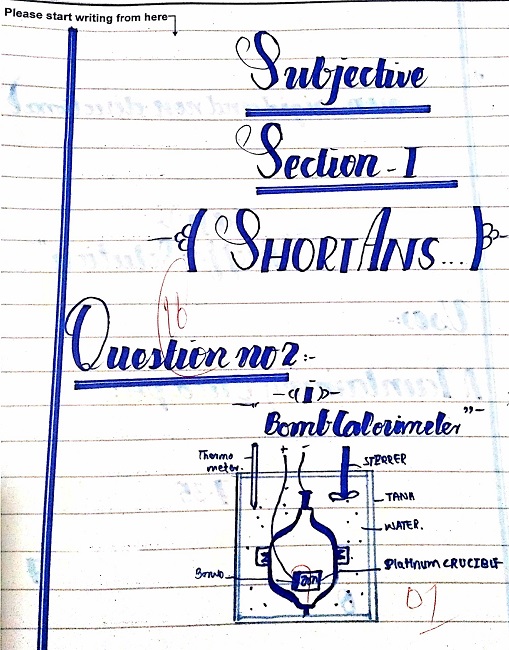 Please start writing from here
Subjective
Section - I
( SHORT ANS... )
16
Question no 2:-
-(I)-
Bomb Calorimeter"-
Thermo
meter.
+ -
STERRER
TANA
WATER.
Bomb
Platinum CRUCIBLE
01